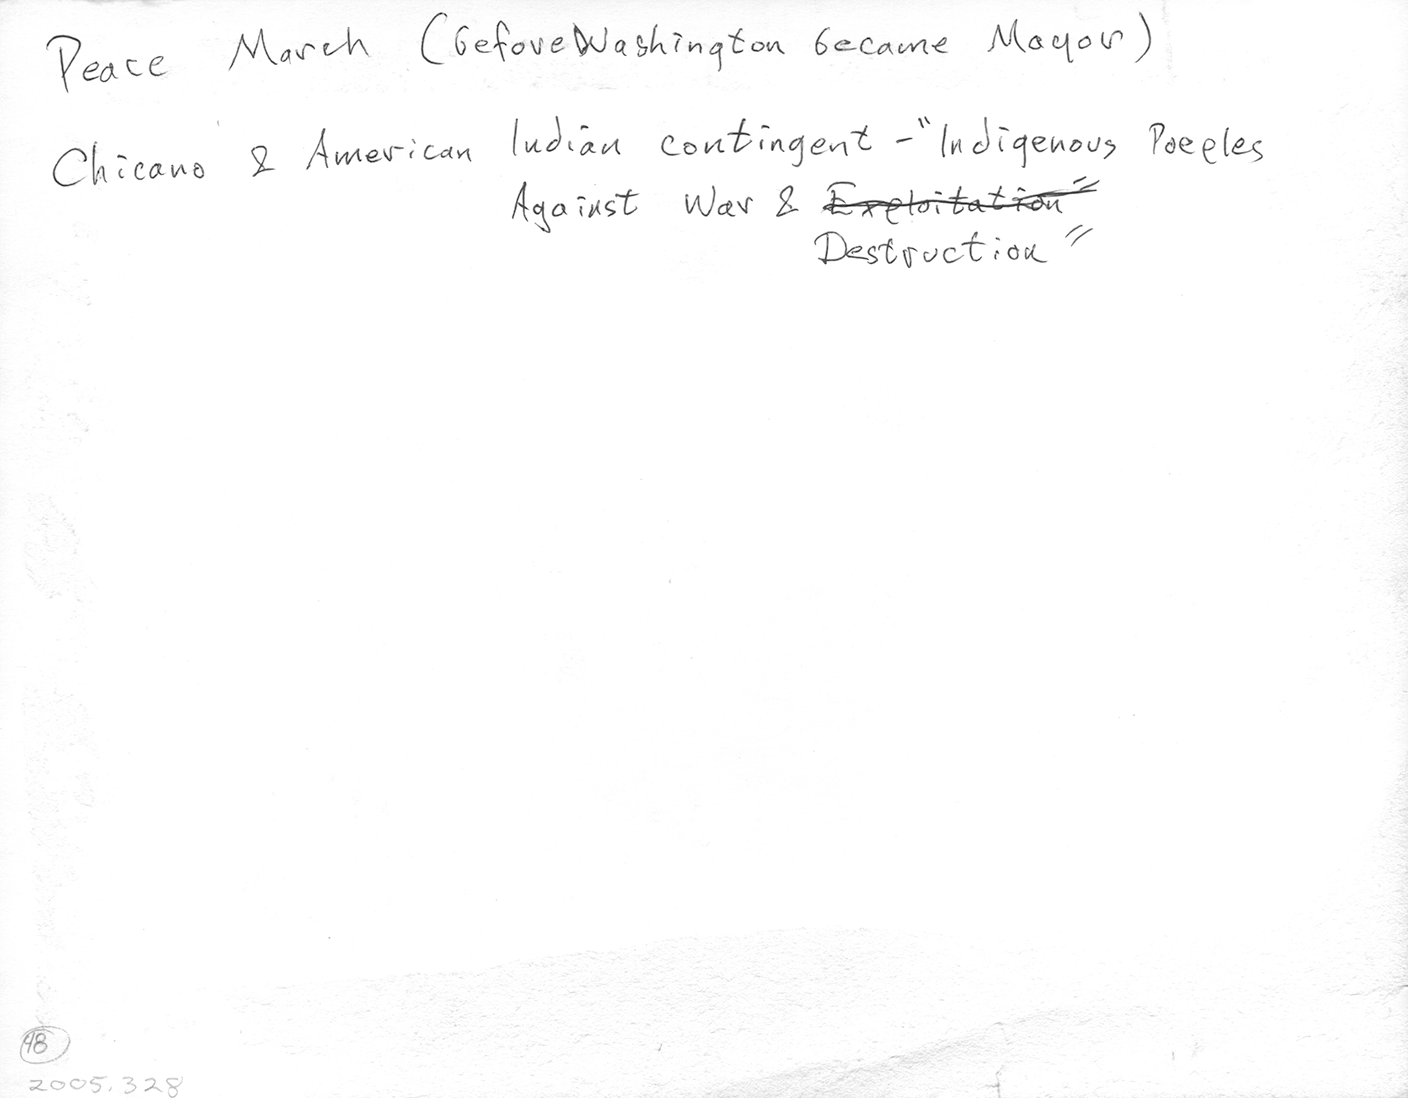 Peace March (before Washington became Mayor)
Chicano & American Indian contingent - "Indigenous Poeples
Against War & Exploitation"
Destruction"
48
2005.328